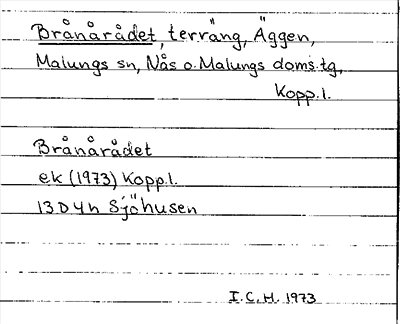 Brånårådet, terräng, Äggen,
Malungs sn, Nås o. Malungs doms.tg,
Kopp.l.
Brånårådet
ek (1973) Kopp.l.
13D4h Sjöhusen
I.C.H. 1973